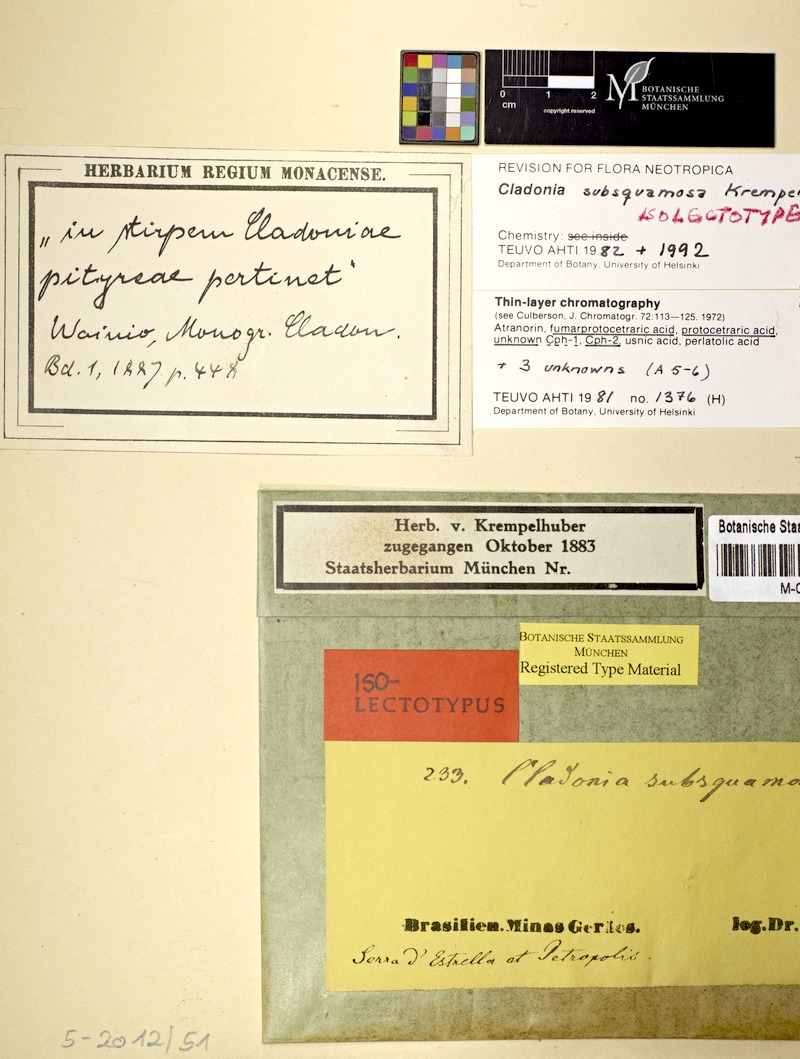 0 1 2
cm
copyright reserved
M BOTANISCHE
STAATSSAMMLUNG
MÜNCHEN
HERBARIUM REGIUM MONACENSE.
„in stirpem Cladoniae
pityreae pertinet"
Wainio, Monogr. Cladon.
Bd. 1, 1887 p. 448
REVISION FOR FLORA NEOTROPICA
Cladonia subsquamosa Krempe
ISOLECTOTYPE
Chemistry: see inside
TEUVO AHTI 1982 + 1992
Department of Botany, University of Helsinki
Thin-layer chromatography
(see Culberson, J. Chromatogr. 72:113—125. 1972)
Atranorin, fumarprotocetraric acid, protocetraric acid,
unknown Cph-1, Cph-2, usnic acid, perlatolic acid
+ 3 unknowns (A 5-6)
TEUVO AHTI 1981 no. 1376 (H)
Department of Botany, University of Helsinki
Herb. v. Krempelhuber
zugegangen Oktober 1883
Staatsherbarium München Nr.
Botanische Staa
M-0
BOTANISCHE STAATSSAMMLUNG
MÜNCHEN
Registered Type Material
ISO-
LECTOTYPUS
233. Cladonia subsquamo
Brasilien. Minas Geraes. leg. Dr.
Serra d'Estrella et Petropolis.
5-2012/51